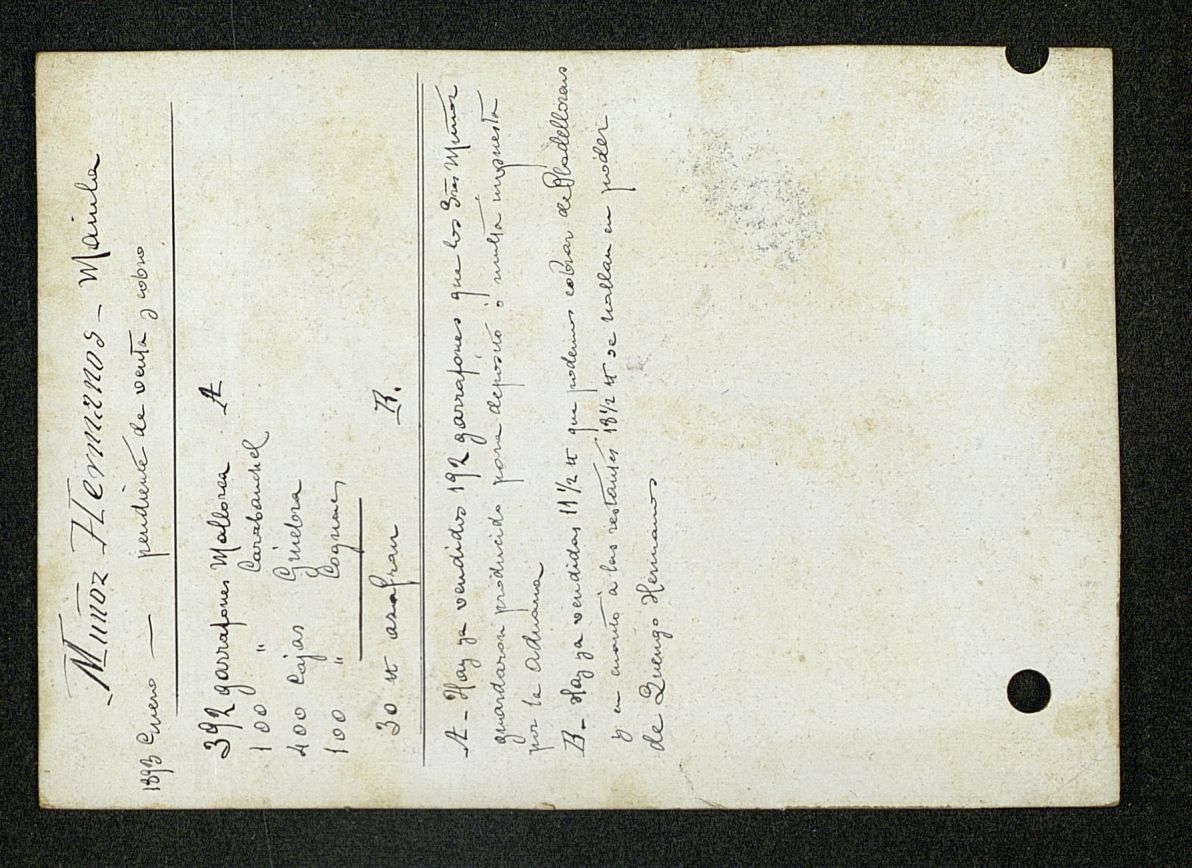 Muñoz Hermanos - Manila
1893 Enero — pendiente de venta y cobro
392 garrafones Mallorca A
100 " Carabanchel
400 Cajas Ginebra
100 " Cognac
30 tt azafran B.
A - Hay ya vendidos 192 garrafones que los Sres Muñoz
guardaron producido para deposito ó multa impuesta
por la Aduana
B - Hay ya vendidas 11 1/2 tt que podemos cobrar de Pladellorens
y en cuanto à las restantes 18 1/2 tt se hallan en poder
de Quengo Hermanos